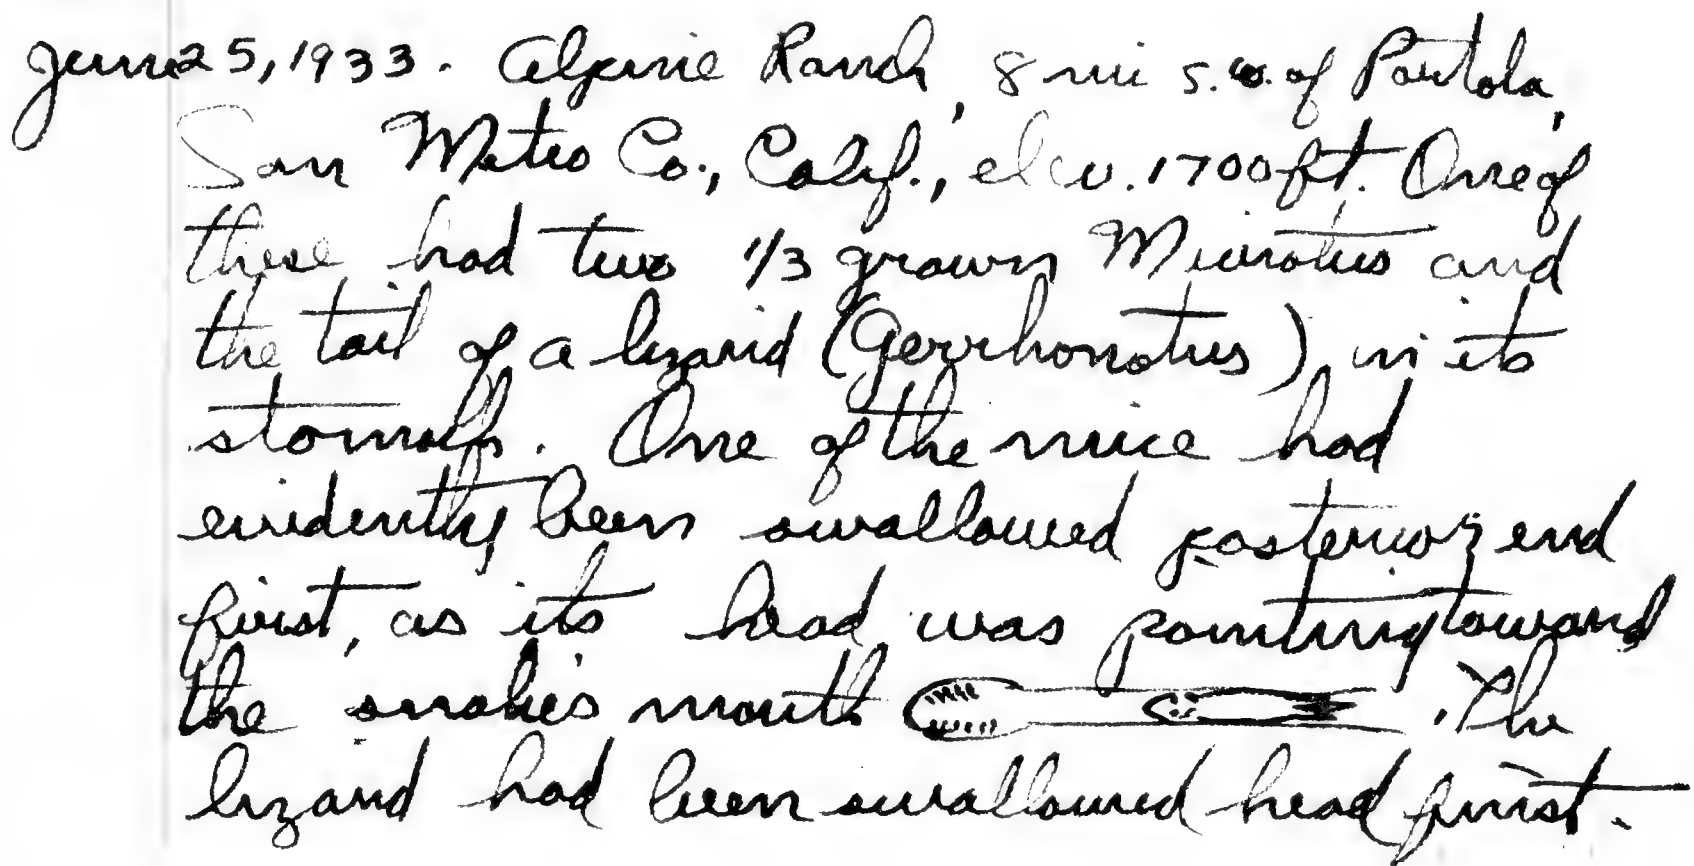 June 25, 1933. Alpine Ranch, 8 mi s.w. of Portola,
San Meteo Co., Calif., elev. 1700 ft. One of
these had two 1/3 grown Microtus and
the tail of a lizard (Gerrhonotus) in its
stomach. One of the mice had
evidently been swallowed posterior end
first, as its head was pointing toward
the snake's mouth . The
lizard had been swallowed head first.